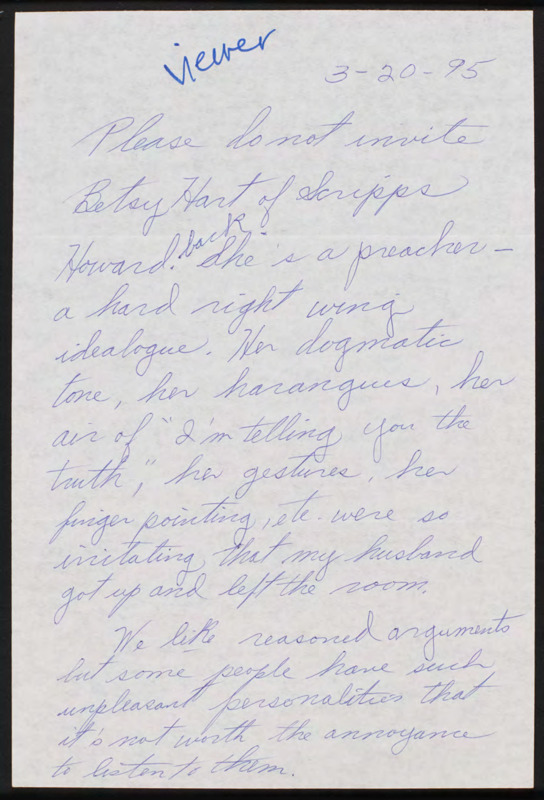 viewer
3-20-95
Please do not invite
Betsy Hart of Scripps
Howard back. She's a preacher -
a hard right wing
idealogue. Her dogmatic
tone, her harangues, her
air of "I'm telling you the
truth," her gestures, her
finger pointing, etc. were so
irritating that my husband
got up and left the room.
We like reasoned arguments
but some people have such
unpleasant personalities that
it's not worth the annoyance
to listen to them.